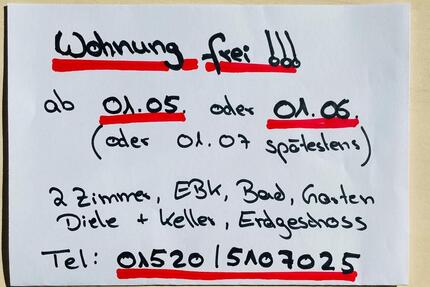 Wohnung frei !!!
ab 01.05. oder 01.06.
(oder 01.07 spätestens)
2 Zimmer, EBK, Bad, Garten
Diele + Keller, Erdgeschoss
Tel: 01520 / 5107025